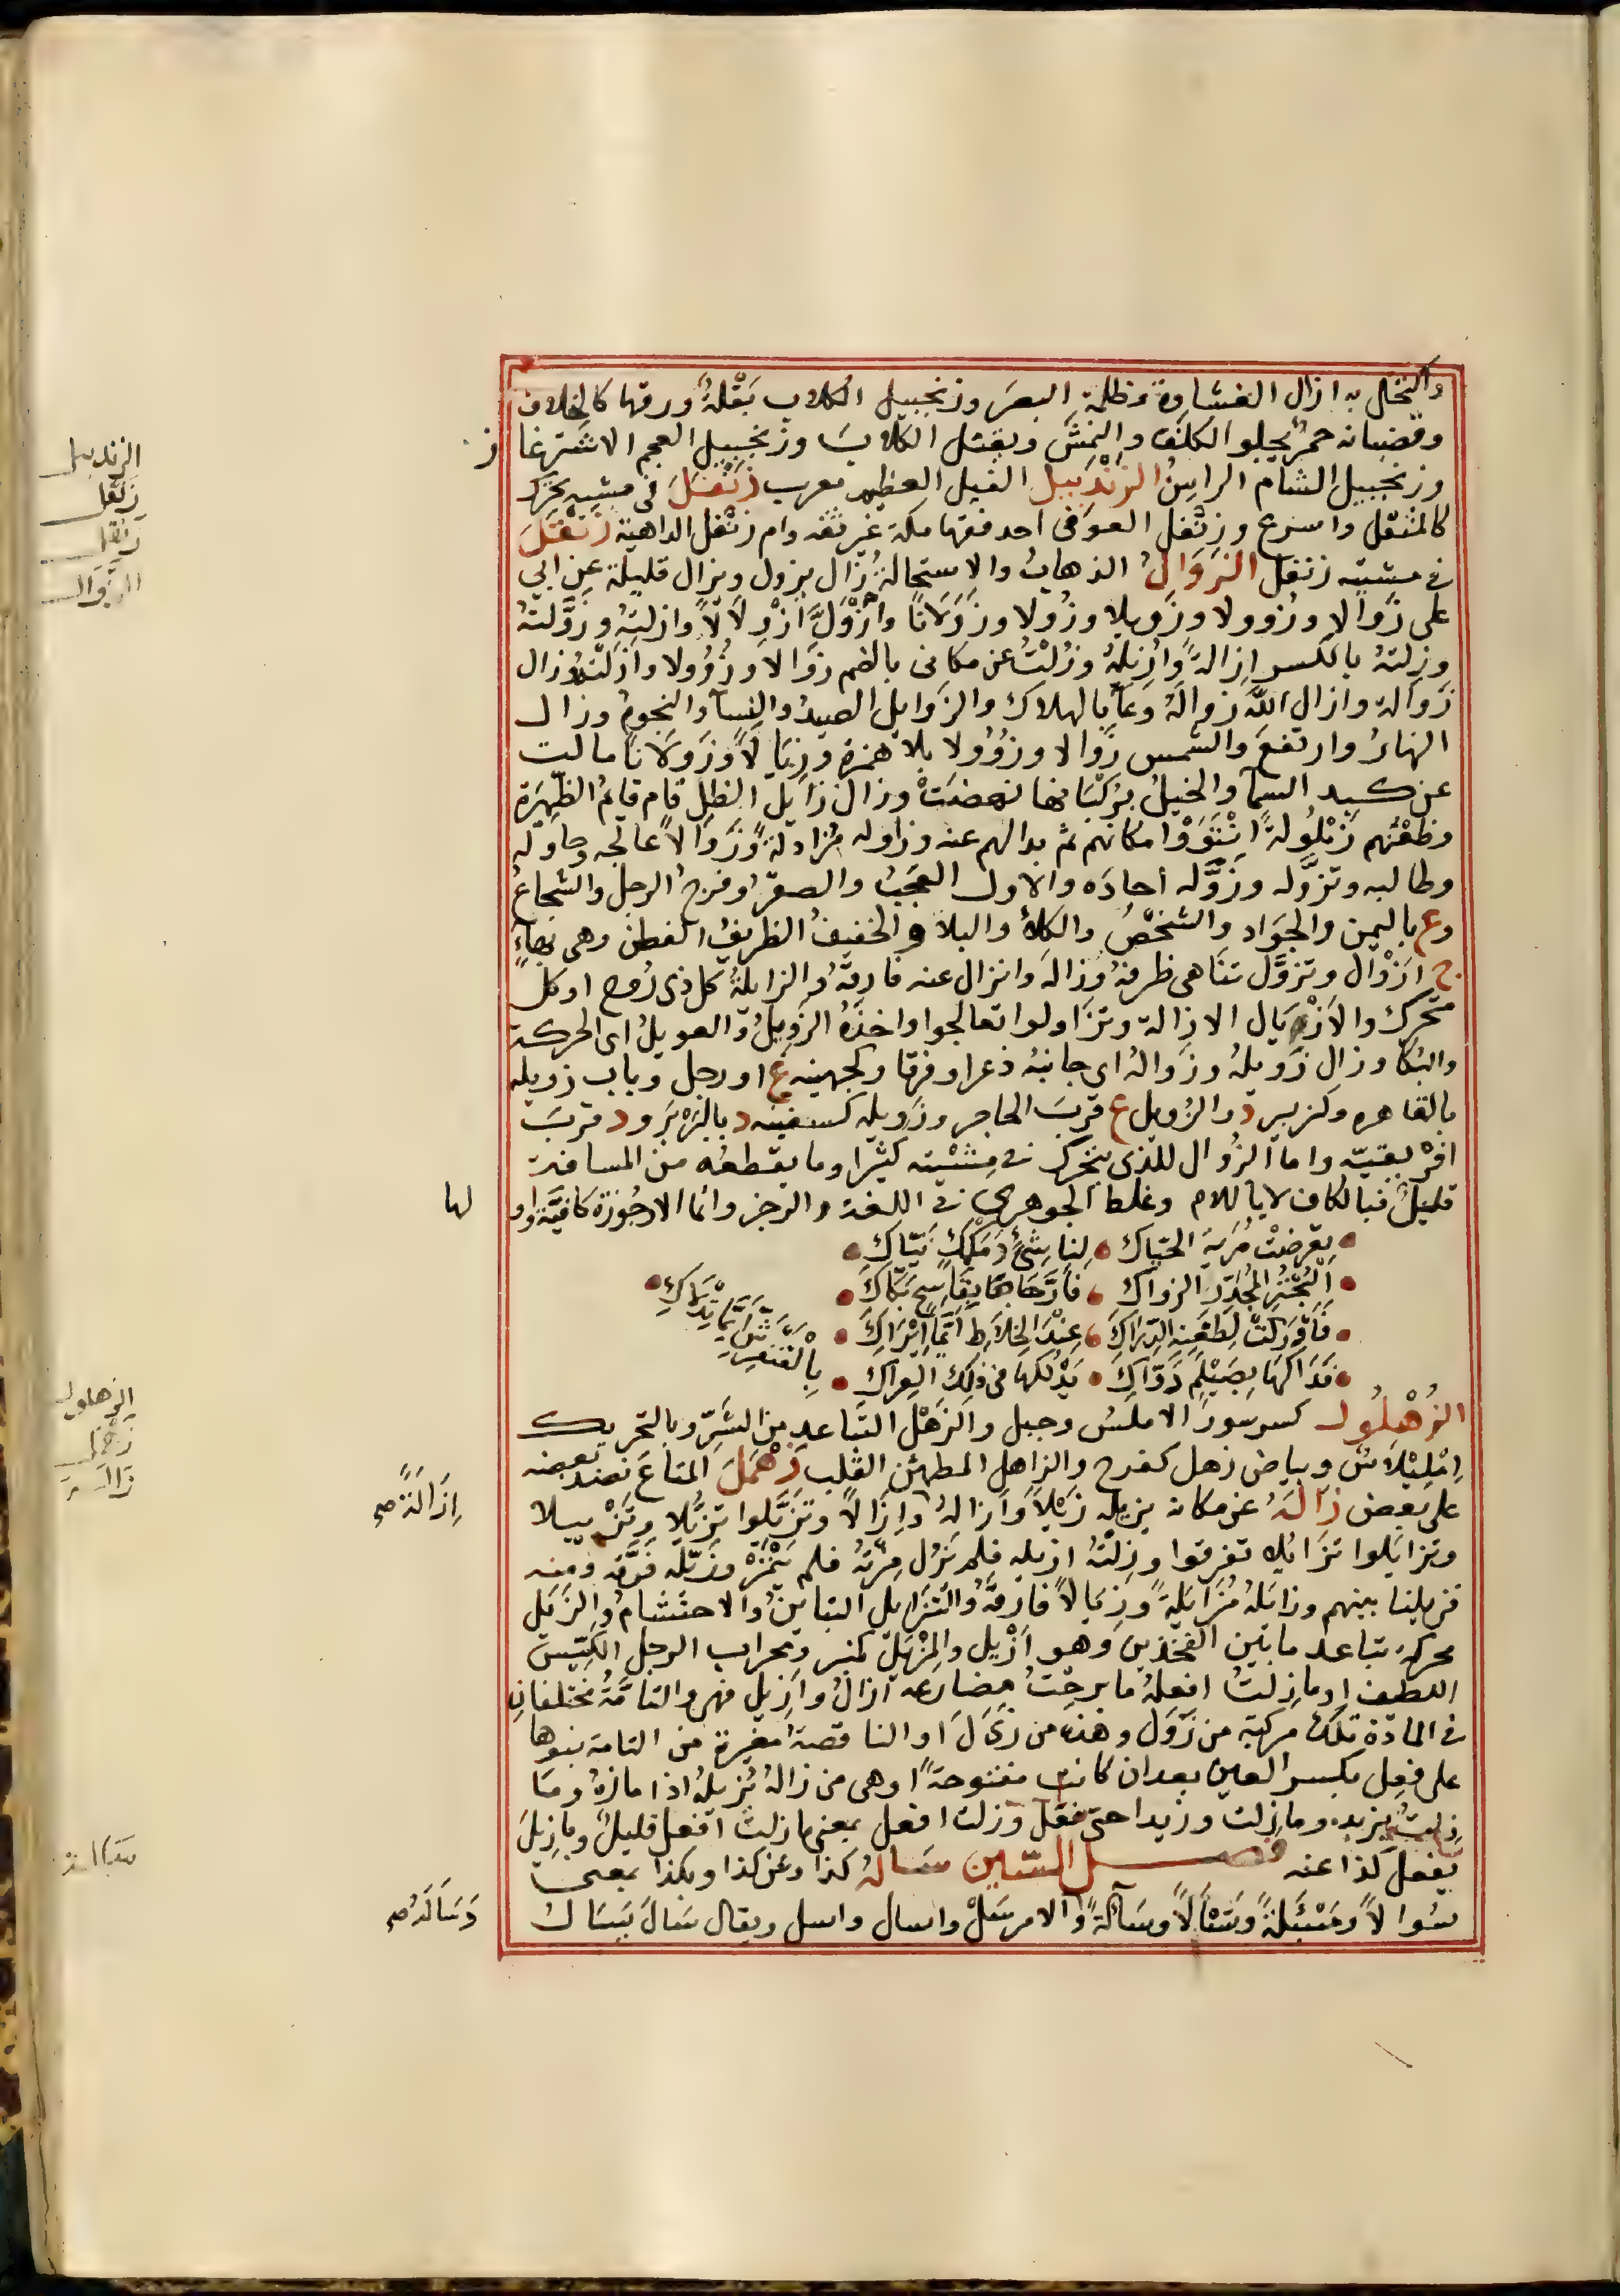 واكتحل به ازال الغشاوة وظلمة البصر وزنجبيل الكلاب بقلة ورقها كالخلاف
وقضبانه حمر يجلو الكلف والنمش ويقتل الكلاب وزنجبيل العجم الاشترغا ز
وزنجبيل الشام الراسن الزندبيل الفيل العظيم معرب زنفل في مشيه تحرك
كالمثقل واسرع وزنفل العوفى احد فقها مكة غير ثقه وام زنفل الداهية زنقل
فى مشيته زنفل الزوال الذهاب والاستحالة زال يزول ويزال قليلة عن ابى
على زوالا وزوولا وزويلا وزولا وزولانا وازول ازولالا وازلته وزولته
وزلته بالكسر ازالة وازيله وزلت عن مكانى بالضم زوالا وزوولا وازلته وزال
زواله وازال الله زواله دعا بالهلاك والزوايل الصيد والنسا والنجوم وزال
النهار وارتفع والشمس زوالا وزوولا بلا همزة وزيالا وزولانا مالت
عن كبد السما والخيل بركبانها نهضت وزال زايل الظل قام قايم الظهيرة
وظعنهم زيلولة انتووا مكانهم ثم بدالهم عنه وزاوله مزاولة وزوالا عالجه وحاوله
وطالبه وتزوله وزوله اجاده والاول العجب والصقر وفرج الرجل والشجاع
وع باليمن والجواد والشخص والكلا والبلا والخفيف الظريف الفطن وهى بهاء
ج ازوال وتزول تناهى ظرفه وزاله وانزال عنه فارقه والزايلة كل ذى روح او كل
متحرك والازديال الازالة وتزاولوا تعالجوا واخذه الزويل والعويل اى الحركة
والبكا وزال زويله وزواله اى جانبه ذعرا وفرقا وكجهينه ع او رجل وباب زويله
بالقاهره وكزبير د والزويل ع قرب الحاجر وزويله كسفينه د بالبربر ود قرب
افريقيه واما الزوال للذى يتحرك فى مشيته كثيرا وما يقطعه من المسافة
قليل فبالكاف لا باللام وغلط الجوهرى فى اللغة والرجز وانما الارجوزة كافية واو لها
تعرضت مرية الحياك لناشئ دمكمك نياك
البحتر المجذر الزواك فارها بقاسح بكاك
فاوركت لطعنه الدراك عند الخلاط ايما ايراك
فداكها بصيلم دواك يدلكها فى ذلك العراك
بالقنفريش ايما تدلاك
الزهلول كسرسور الاملس وجبل والزهل التباعد من الشر وبالتحريك
امليلاس وبياض زهل كفرح والزاهل المطمئن القلب زهمل المتاع نضد بعضه
على بعض زاله عن مكانه يزيله زيلا وازاله وازالا وتزيلوا تزيلا وتزييلا
وتزايلوا تزايلا تفرقوا وزلته ازيله فلم تزل مزته فلم ينمز وزيله فرقه ومنه
فزيلنا بينهم وزايله مزايلة وزيالا فارقه والتزايل التباين والاحتشام والزيل
محركة تباعد ما بين الفخذين وهو ازيل والمزيل كمنبر ومحراب الرجل الكيس
اللطيف او ما زلت افعله ما برحت مضارعه ازال وازيل فهى والتامة مختلفان
فى المادة تلك مركبة من زول وهذه من زيل او الناقصة مغيرة من التامة بنوها
على فعل بكسر العين بعد ان كانت مفتوحة او هى من زاله يزيله اذا مازه وما
زلت بزيد وما زلت وزيدا حتى فعل وزلت افعل بمعنى ما زلت افعل قليل وما زيل
يفعل كذا عنه فصل السين ساله كذا وعن كذا وبكذا بمعنى
سوالا ومسئلة وتسالا وسآلة والامر سل واسال واسل ويقال سال يسال
الزندبيل
زنفل
زنقل
الزوال
الزهلول
زهمل
زاله
ازالة صح
ساله
وسالة صح